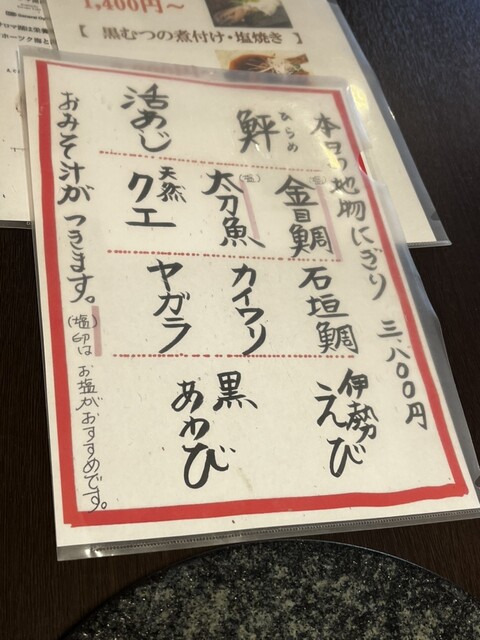 1,400円~
【 黒むつの煮付け・塩焼き 】
本日の地物にぎり 三、八〇〇円
鮃
ひらめ
活あじ
金目鯛
(塩)
太刀魚
(塩)
天然
クエ
石垣鯛
カイワリ
ヤガラ
伊勢
えび
黒
あわび
おみそ汁がつきます。
(塩)印はお塩がおすすめです。